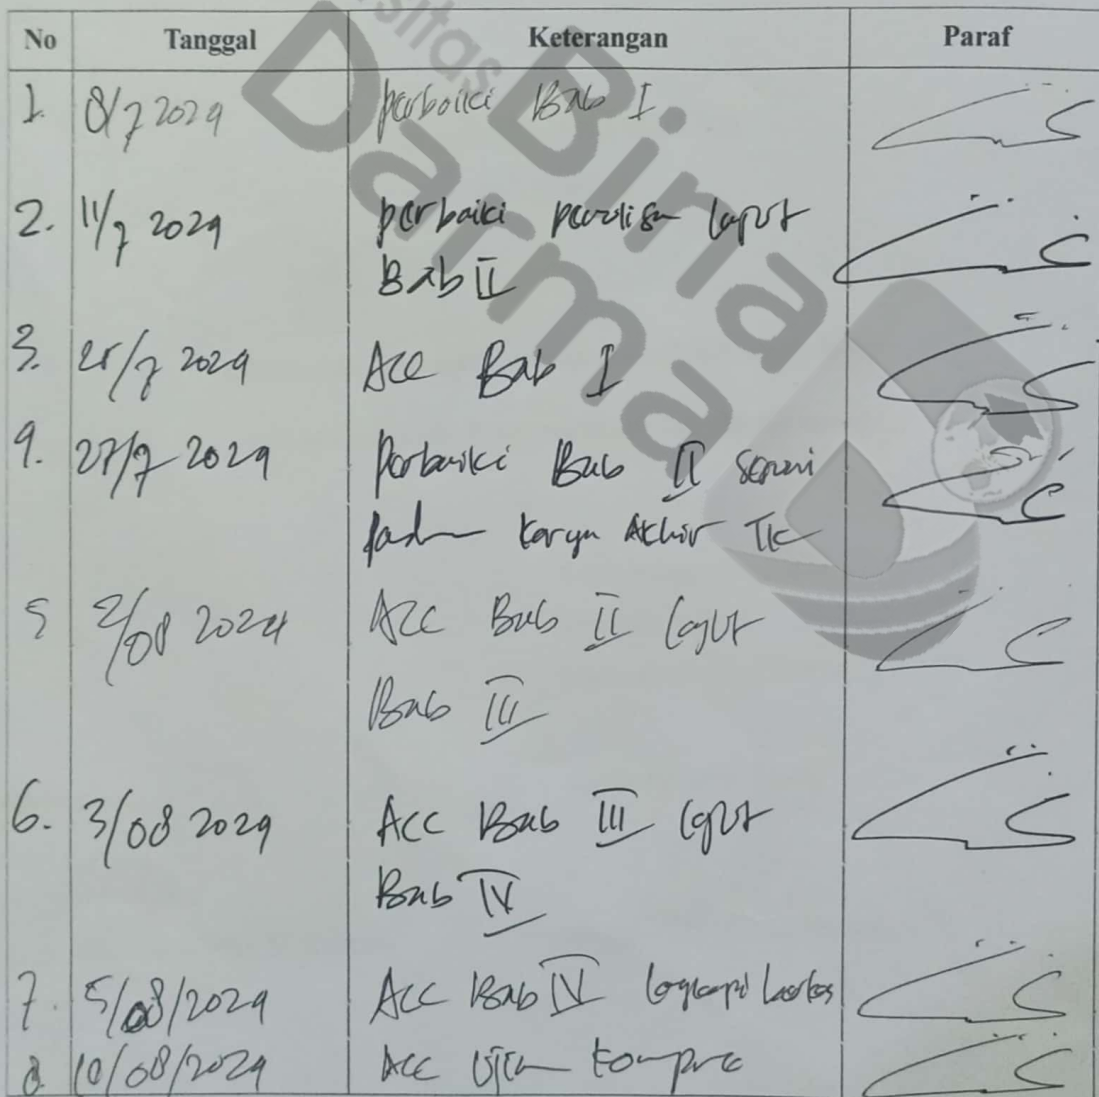 No Tanggal Keterangan Paraf
1. 8/7 2024 perbaiki Bab I
2. 11/7 2024 perbaiki penulisan lanjut
Bab II
3. 25/7 2024 Acc Bab I
4. 27/7 2024 Perbaiki Bab II sesuai
Karya Akhir TK
5 2/08 2024 Acc Bab II lanjut
Bab III
6. 3/08 2024 Acc Bab III lanjut
Bab IV
7. 5/08/2024 Acc Bab IV lengkapi berkas
8. 10/08/2024 Acc Ujian Kompre
Universitas
Bina
Darma